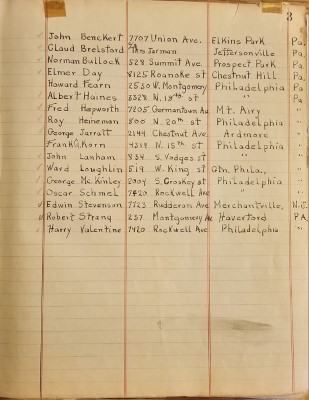 3
John Benckert 7707 Union Ave. Elkins Park Pa.
Claud Brelsford Jarman Jeffersonville Pa.
Norman Bullock 528 Summit Ave. Prospect Park Pa.
Elmer Day 8125 Roanoke St Chestnut Hill Pa.
Howard Fearn 2530 W. Montgomery Philadelphia Pa
Albert Haines 3328 N. 18th St " "
Fred Hepworth 7205 Germantown Av Mt. Airy "
Roy Heineman 800 N. 20th St Philadelphia "
George Jarratt 2144 Chestnut Ave. Ardmore "
Frank G. Korn 4314 N. 15th St Philadelphia "
John Lanham 834 S. St " "
Ward Loughlin 519 W. King St Gtn. Phila., "
George McKinley 2004 S. Croskey St Philadelphia "
Oscar Schmel 7420 Rockwell Ave " "
Edwin Stevenson 7723 Rudderow Ave Merchantville, N.J.
Robert Strang 237 Montgomery Av Haverford PA
Harry Valentine 7420 Rockwell Ave Philadelphia "